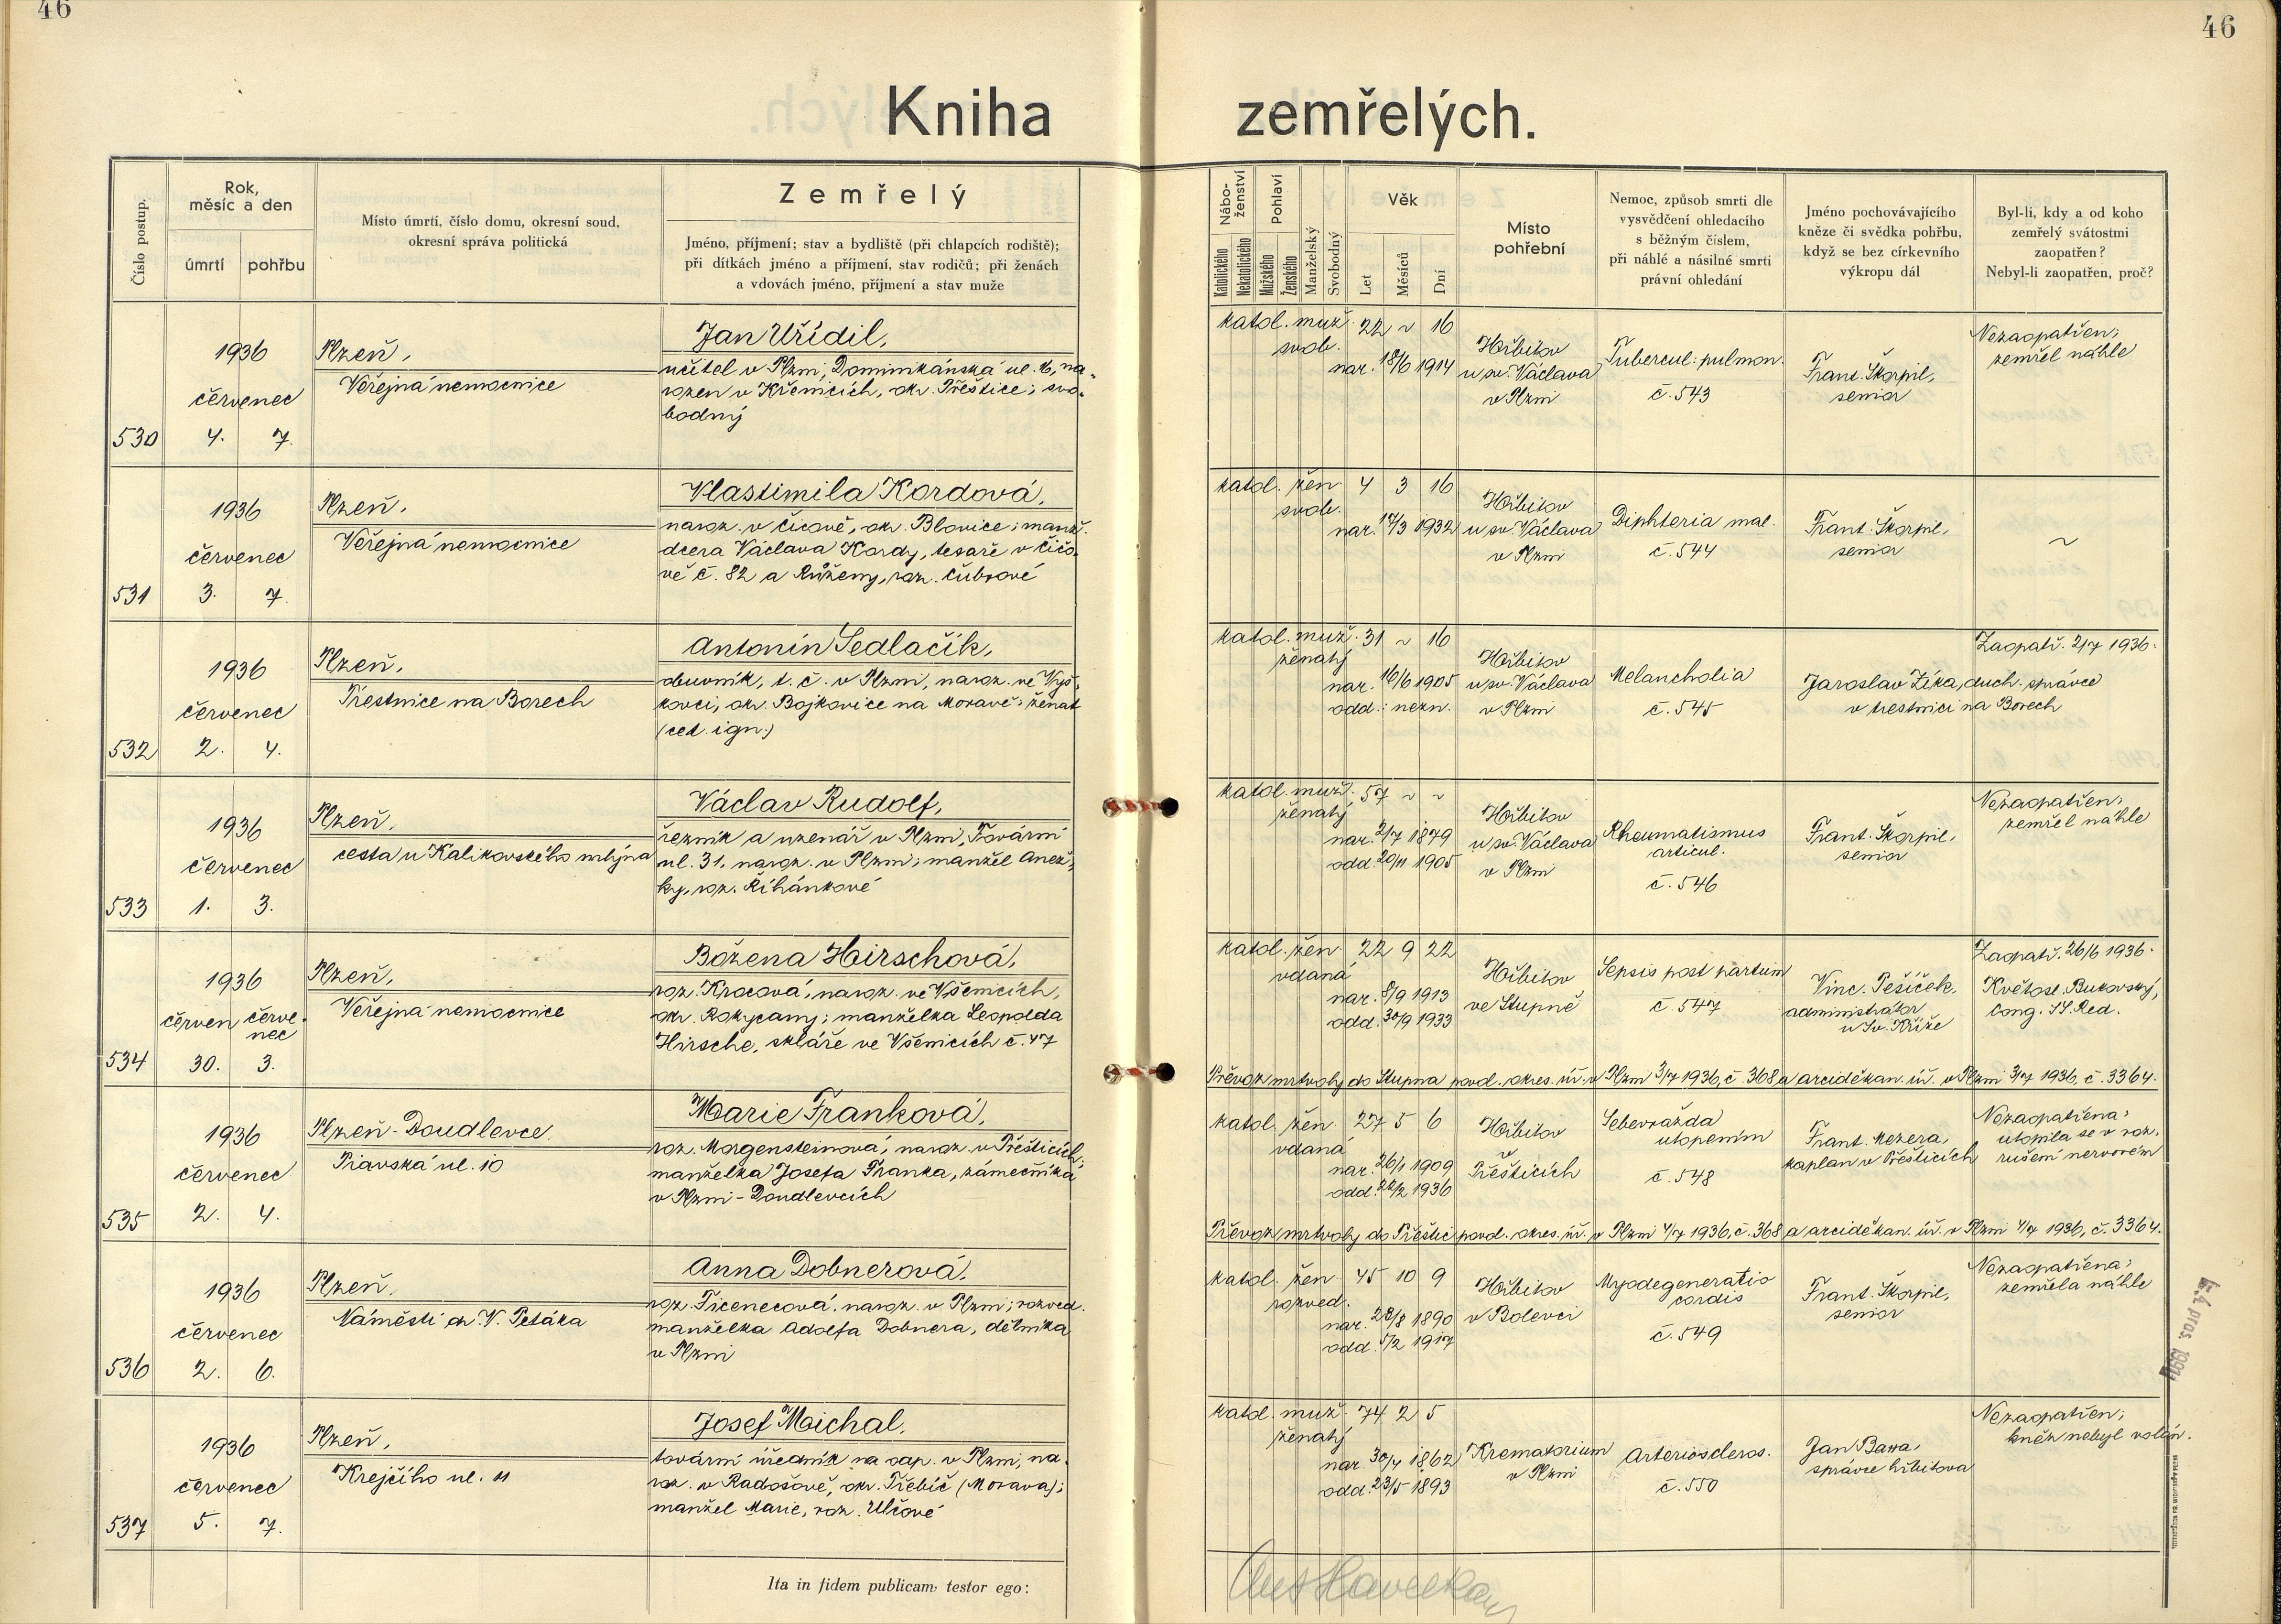 46
46
Kniha zemřelých.
Číslo postup.
Rok,
měsíc a den
úmrtí
pohřbu
Místo úmrtí, číslo domu, okresní soud,
okresní správa politická
Zemřelý
Jméno, příjmení; stav a bydliště (při chlapcích rodiště);
při dítkách jméno a příjmení, stav rodičů; při ženách
a vdovách jméno, příjmení a stav muže
Nábo-
ženství
Katolického
Nekatolického
Pohlaví
Mužského
Ženského
Manželský
Svobodný
Věk
Let
Měsíců
Dní
Místo
pohřební
Nemoc, způsob smrti dle
vysvědčení ohledacího
s běžným číslem,
při náhlé a násilné smrti
právní ohledání
Jméno pochovávajícího
kněze či svědka pohřbu,
když se bez církevního
výkropu dál
Byl-li, kdy a od koho
zemřelý svátostmi
zaopatřen?
Nebyl-li zaopatřen, proč?
530
1936
červenec
4. 7.
Plzeň,
Veřejná nemocnice
Jan Uřídil,
učitel v Plzni, Dominikánská ul. 6, na-
rozen v Křenicích, okr. Přeštice; svo-
bodný
katol. muž. 22 ~ 16
svob.
nar. 18/6 1914
Hřbitov
u sv. Václava
v Plzni
Tubercul. pulmon.
č. 543
Frant. Škorpil,
senior
Nezaopatřen;
zemřel náhle
531
1936
červenec
3. 7.
Plzeň,
Veřejná nemocnice
Vlastimila Kordová,
naroz. v Čicově, okr. Blovice; manž.
dcera Václava Kordy, tesaře v Čičo-
vě č. 82 a Růženy, roz. Čubrové
katol. žen. 4 3 16
svob.
nar. 17/3 1932
Hřbitov
u sv. Václava
v Plzni
Diphteria mal.
č. 544
Frant. Škorpil,
senior
~
532
1936
červenec
2. 4.
Plzeň,
Trestnice na Borech
Antonín Sedlačík,
obuvník, t. č. v Plzni, naroz. ve Vyš-
kovci, okr. Bojkovice na Moravě; ženat
(cet. ign.)
katol. muž. 31 ~ 16
ženatý
nar. 16/6 1905
odd.: nezn.
Hřbitov
u sv. Václava
v Plzni
Melancholia
č. 545
Jaroslav Zíka, duch. správce
v trestnici na Borech
Zaopatř. 2/7 1936.
533
1936
červenec
1. 3.
Plzeň,
cesta u Kalikovského mlýna
Václav Rudolf,
řezník a uzenář v Plzni, Tovární
ul. 31, naroz. v Plzni; manžel Anež-
ky, roz. Říhánkové
katol. muž. 57 ~ ~
ženatý
nar. 2/7 1879
odd. 20/11 1905
Hřbitov
u sv. Václava
v Plzni
Rheumatismus
articul.
č. 546
Frant. Škorpil,
senior
Nezaopatřen;
zemřel náhle
534
1936
červen červe-
nec
30. 3.
Plzeň,
Veřejná nemocnice
Božena Hirschová,
roz. Krocová, naroz. ve Všenicích,
okr. Rokycany; manželka Leopolda
Hirsche, skláře ve Všenicích č. 47
katol. žen. 22 9 22
vdaná
nar. 8/9 1913
odd. 30/9 1933
Hřbitov
ve Stupně
Sepsis post partum
č. 547
Vinc. Pešíček,
administrátor
u Sv. Kříže
Zaopatř. 26/6 1936.
Květosl. Bukovský,
Cong. SS. Red.
Převoz mrtvoly do Stupna povol. okres. úř. v Plzni 3/7 1936, č. 368 a arciděkan. úř. v Plzni 3/7 1936, č. 3364.
535
1936
červenec
2. 4.
Plzeň-Doudlevce,
Piavská ul. 10
Marie Franková,
roz. Morgensteinová, naroz. v Přešticích;
manželka Josefa Franka, zámečníka
v Plzni-Doudlevcích
katol. žen. 27 5 6
vdaná
nar. 26/1 1909
odd. 22/2 1936
Hřbitov
v
Přešticích
Sebevražda
utopením
č. 548
Frant. Mezera,
kaplan v Přešticích
Nezaopatřena;
utopila se v roz-
rušení nervovém
Převoz mrtvoly do Přeštic povol. okres. úř. v Plzni 4/7 1936, č. 368 a arciděkan. úř. v Plzni 4/7 1936, č. 3364.
536
1936
červenec
2. 6.
Plzeň,
Náměstí dr. V. Petáka
Anna Dobnerová,
roz. Ticenecová, naroz. v Plzni; rozved.
manželka Adolfa Dobnera, dělníka
v Plzni
katol. žen. 45 10 9
rozved.
nar. 23/8 1890
odd. 5/2 1917
Hřbitov
v Bolevci
Myodegeneratio
cordis
č. 549
Frant. Škorpil,
senior
Nezaopatřena;
zemřela náhle
537
1936
červenec
5. 7.
Plzeň,
Krejčího ul. 11
Josef Maichal,
tovární úředník na odp. v Plzni, na-
roz. v Radošově, okr. Třebíč (Morava);
manžel Marie, roz. Ulčové
katol. muž. 74 2 5
ženatý
nar. 30/4 1862
odd. 23/5 1893
Krematorium
v Plzni
Arterioscleros.
č. 550
Jan Bawa,
správce hřbitova
Nezaopatřen;
kněz nebyl volán.
Ita in fidem publicam testor ego: